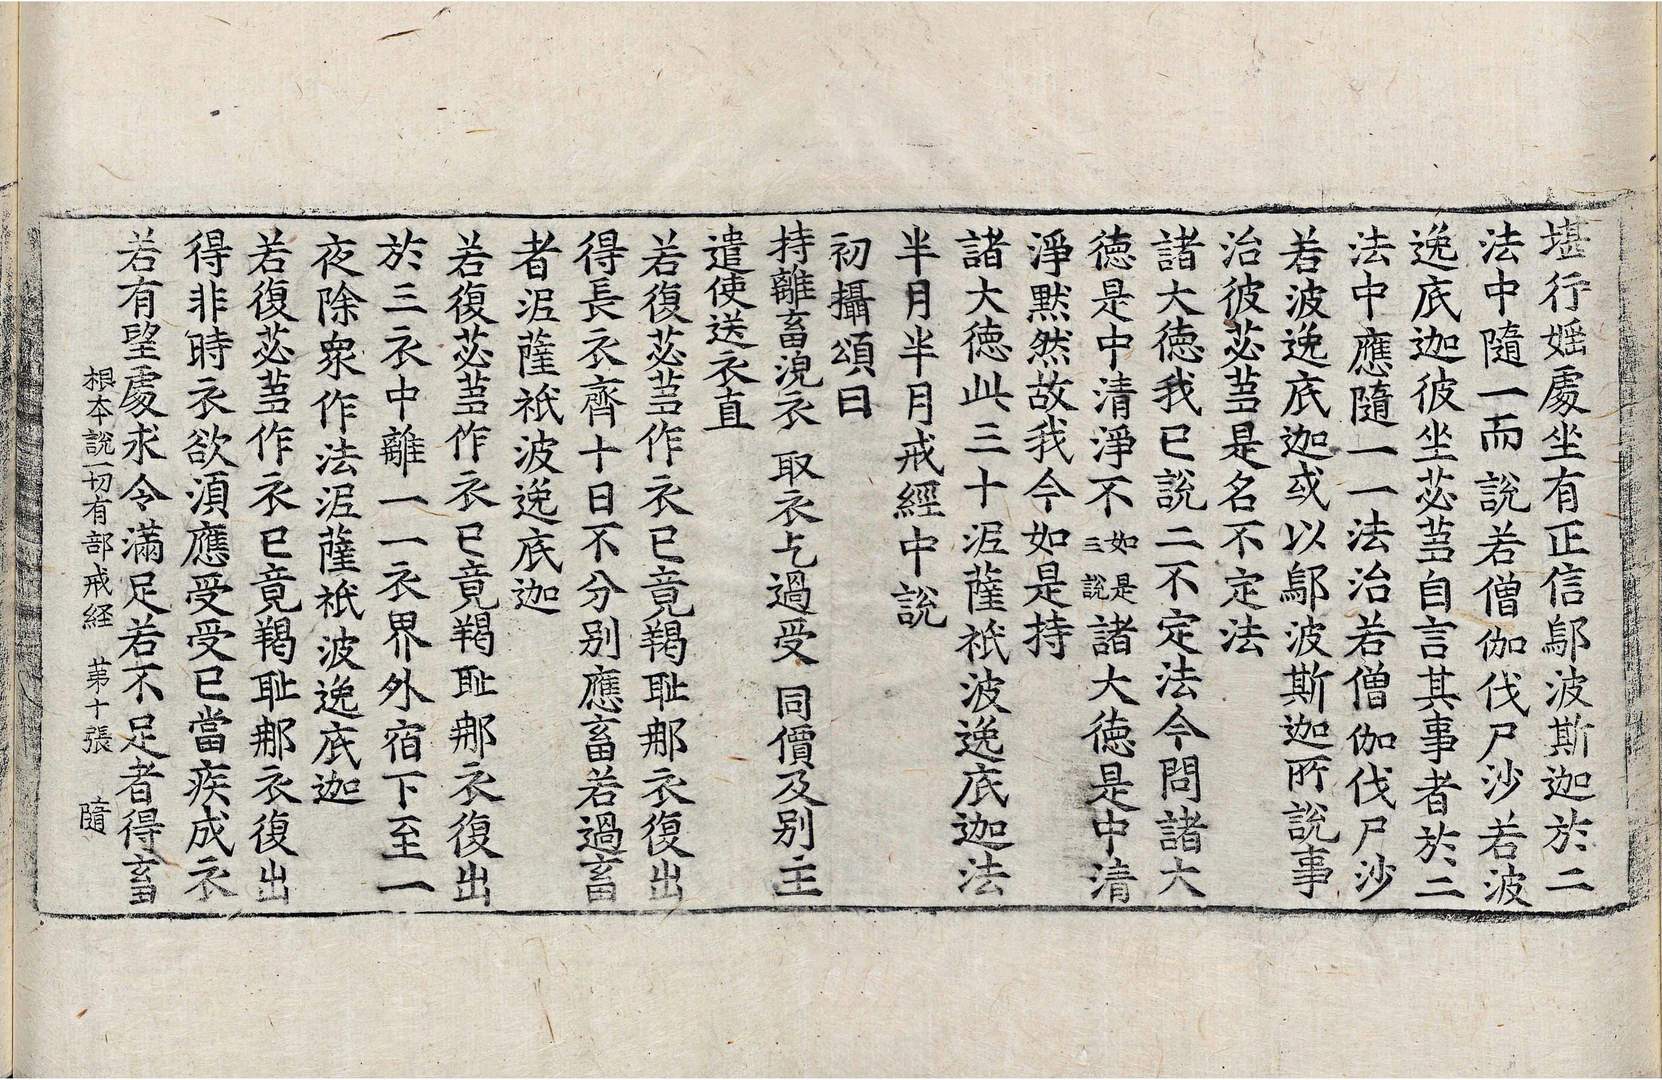 堪行婬處坐有正信鄔波斯迦於二
法中隨一而說若僧伽伐尸沙若波
逸底迦彼坐苾芻自言其事者於二
法中應隨一一法治若僧伽伐尸沙
若波逸底迦或以鄔波斯迦所說事
治彼苾芻是名不定法
諸大德我已說二不定法今問諸大
德是中清淨不如是三說諸大德是中清
淨默然故我今如是持
諸大德此三十泥薩祇波逸底迦法
半月半月戒經中說
初攝頌曰
持離畜浣衣 取衣乞過受 同價及別主
遣使送衣直
若復苾芻作衣已竟羯恥那衣復出
得長衣齊十日不分別應畜若過畜
者泥薩祇波逸底迦
若復苾芻作衣已竟羯恥那衣復出
於三衣中離一一衣界外宿下至一
夜除衆作法泥薩祇波逸底迦
若復苾芻作衣已竟羯恥那衣復出
得非時衣欲湏應受受已當疾成衣
若有望處求令滿足若不足者得畜
根本說一切有部戒経 苐十張 隨